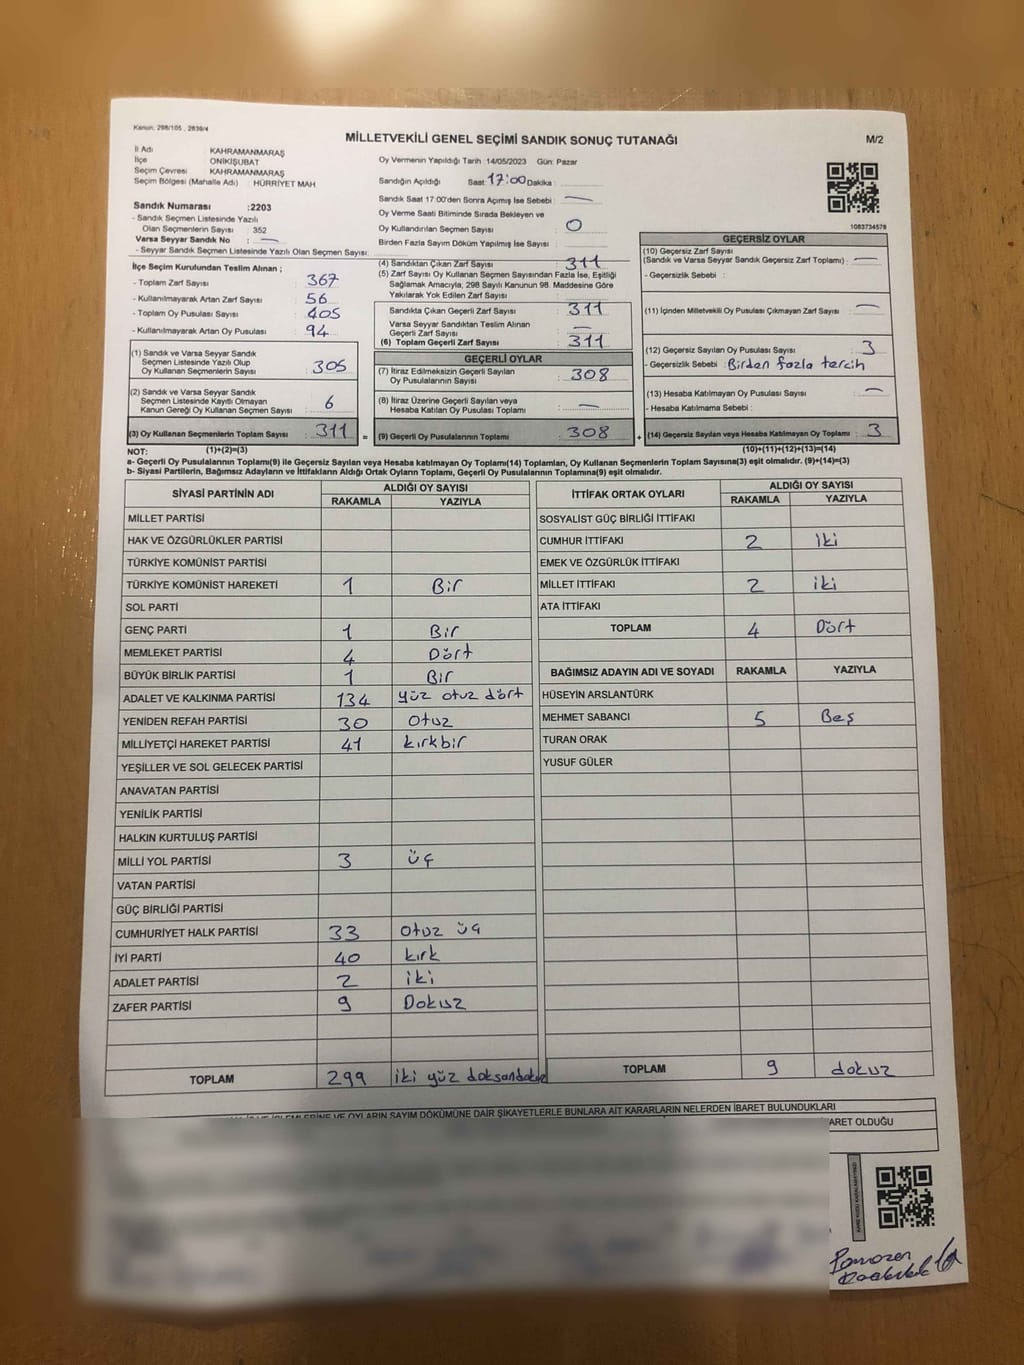 Kanun: 298/105 , 2839/4
MİLLETVEKİLİ GENEL SEÇİMİ SANDIK SONUÇ TUTANAĞI
M/2
İl Adı KAHRAMANMARAŞ
İlçe ONİKİŞUBAT
Seçim Çevresi KAHRAMANMARAŞ
Seçim Bölgesi (Mahalle Adı) : HÜRRİYET MAH
Sandık Numarası :2203
- Sandık Seçmen Listesinde Yazılı
Olan Seçmenlerin Sayısı : 352
Varsa Seyyar Sandık No : —
- Seyyar Sandık Listesinde Yazılı Olan Seçmen Sayısı:
Oy Vermenin Yapıldığı Tarih :14/05/2023 Gün: Pazar
Sandığın Açıldığı Saat 17:00 Dakika :
Sandık Saat 17:00'den Sonra Açımış İse Sebebi : —
Oy Verme Saati Bitiminde Sırada Bekleyen ve
Oy Kullandırılan Seçmen Sayısı : 0
Birden Fazla Sayım Döküm Yapılmış İse Sayısı :
1083734578
İlçe Seçim Kurulundan Teslim Alınan ;
- Toplam Zarf Sayısı : 367
- Kullanılmayarak Artan Zarf Sayısı : 56
- Toplam Oy Pusulası Sayısı : 405
- Kullanılmayarak Artan Oy Pusulası : 94
(1) Sandık ve Varsa Seyyar Sandık
Seçmen Listesinde Yazılı Olup
Oy Kullanan Seçmenlerin Sayısı : 305
(2) Sandık ve Varsa Seyyar Sandık
Seçmen Listesinde Kayıtlı Olmayan
Kanun Gereği Oy Kullanan Seçmen Sayısı : 6
(3) Oy Kullanan Seçmenlerin Toplam Sayısı : 311 =
(4) Sandıktan Çıkan Zarf Sayısı : 311
(5) Zarf Sayısı Oy Kullanan Seçmen Sayısından Fazla İse, Eşitliği
Sağlamak Amacıyla, 298 Sayılı Kanunun 98. Maddesine Göre
Yakılarak Yok Edilen Zarf Sayısı :
Sandıkta Çıkan Geçerli Zarf Sayısı : 311
Varsa Seyyar Sandıktan Teslim Alınan
Geçerli Zarf Sayısı : —
(6) Toplam Geçerli Zarf Sayısı : 311
GEÇERLİ OYLAR
(7) İtiraz Edilmeksizin Geçerli Sayılan
Oy Pusulalarının Sayısı : 308
(8) İtiraz Üzerine Geçerli Sayılan veya
Hesaba Katılan Oy Pusulası Toplamı : —
(9) Geçerli Oy Pusulalarının Toplamı : 308 +
GEÇERSİZ OYLAR
(10) Geçersiz Zarf Sayısı
(Sandık ve Varsa Seyyar Sandık Geçersiz Zarf Toplamı) : —
- Geçersizlik Sebebi :
(11) İçinden Milletvekili Oy Pusulası Çıkmayan Zarf Sayısı : —
(12) Geçersiz Sayılan Oy Pusulası Sayısı : 3
- Geçersizlik Sebebi : Birden fazla tercih
(13) Hesaba Katılmayan Oy Pusulası Sayısı : —
- Hesaba Katılmama Sebebi :
(14) Geçersiz Sayılan veya Hesaba Katılmayan Oy Toplamı : 3
NOT: (1)+(2)=(3) (10)+(11)+(12)+(13)=(14)
a- Geçerli Oy Pusulalarının Toplamı(9) ile Geçersiz Sayılan veya Hesaba katılmayan Oy Toplamı(14) Toplamları, Oy Kullanan Seçmenlerin Toplam Sayısına(3) eşit olmalıdır. (9)+(14)=(3)
b- Siyasi Partilerin, Bağımsız Adayların ve İttifakların Aldığı Ortak Oyların Toplamı, Geçerli Oy Pusulalarının Toplamına(9) eşit olmalıdır.
SİYASİ PARTİNİN ADI ALDIĞI OY SAYISI
RAKAMLA YAZIYLA
MİLLET PARTİSİ
HAK VE ÖZGÜRLÜKLER PARTİSİ
TÜRKİYE KOMÜNİST PARTİSİ
TÜRKİYE KOMÜNİST HAREKETİ 1 Bir
SOL PARTİ
GENÇ PARTİ 1 Bir
MEMLEKET PARTİSİ 4 Dört
BÜYÜK BİRLİK PARTİSİ 1 Bir
ADALET VE KALKINMA PARTİSİ 134 yüz otuz dört
YENİDEN REFAH PARTİSİ 30 Otuz
MİLLİYETÇİ HAREKET PARTİSİ 41 kırkbir
YEŞİLLER VE SOL GELECEK PARTİSİ
ANAVATAN PARTİSİ
YENİLİK PARTİSİ
HALKIN KURTULUŞ PARTİSİ
MİLLİ YOL PARTİSİ 3 üç
VATAN PARTİSİ
GÜÇ BİRLİĞİ PARTİSİ
CUMHURİYET HALK PARTİSİ 33 Otuz üç
İYİ PARTİ 40 kırk
ADALET PARTİSİ 2 iki
ZAFER PARTİSİ 9 Dokuz
TOPLAM 299 iki yüz doksandokuz
İTTİFAK ORTAK OYLARI ALDIĞI OY SAYISI
RAKAMLA YAZIYLA
SOSYALİST GÜÇ BİRLİĞİ İTTİFAKI
CUMHUR İTTİFAKI 2 iki
EMEK VE ÖZGÜRLÜK İTTİFAKI
MİLLET İTTİFAKI 2 iki
ATA İTTİFAKI
TOPLAM 4 Dört
BAĞIMSIZ ADAYIN ADI VE SOYADI RAKAMLA YAZIYLA
HÜSEYİN ARSLANTÜRK
MEHMET SABANCI 5 Beş
TURAN ORAK
YUSUF GÜLER
TOPLAM 9 dokuz
İŞLEMLERİNE VE OYLARIN SAYIM DÖKÜMÜNE DAİR ŞİKAYETLERLE BUNLARA AİT KARARLARIN NELERDEN İBARET BULUNDUKLARI
BARET OLDUĞU